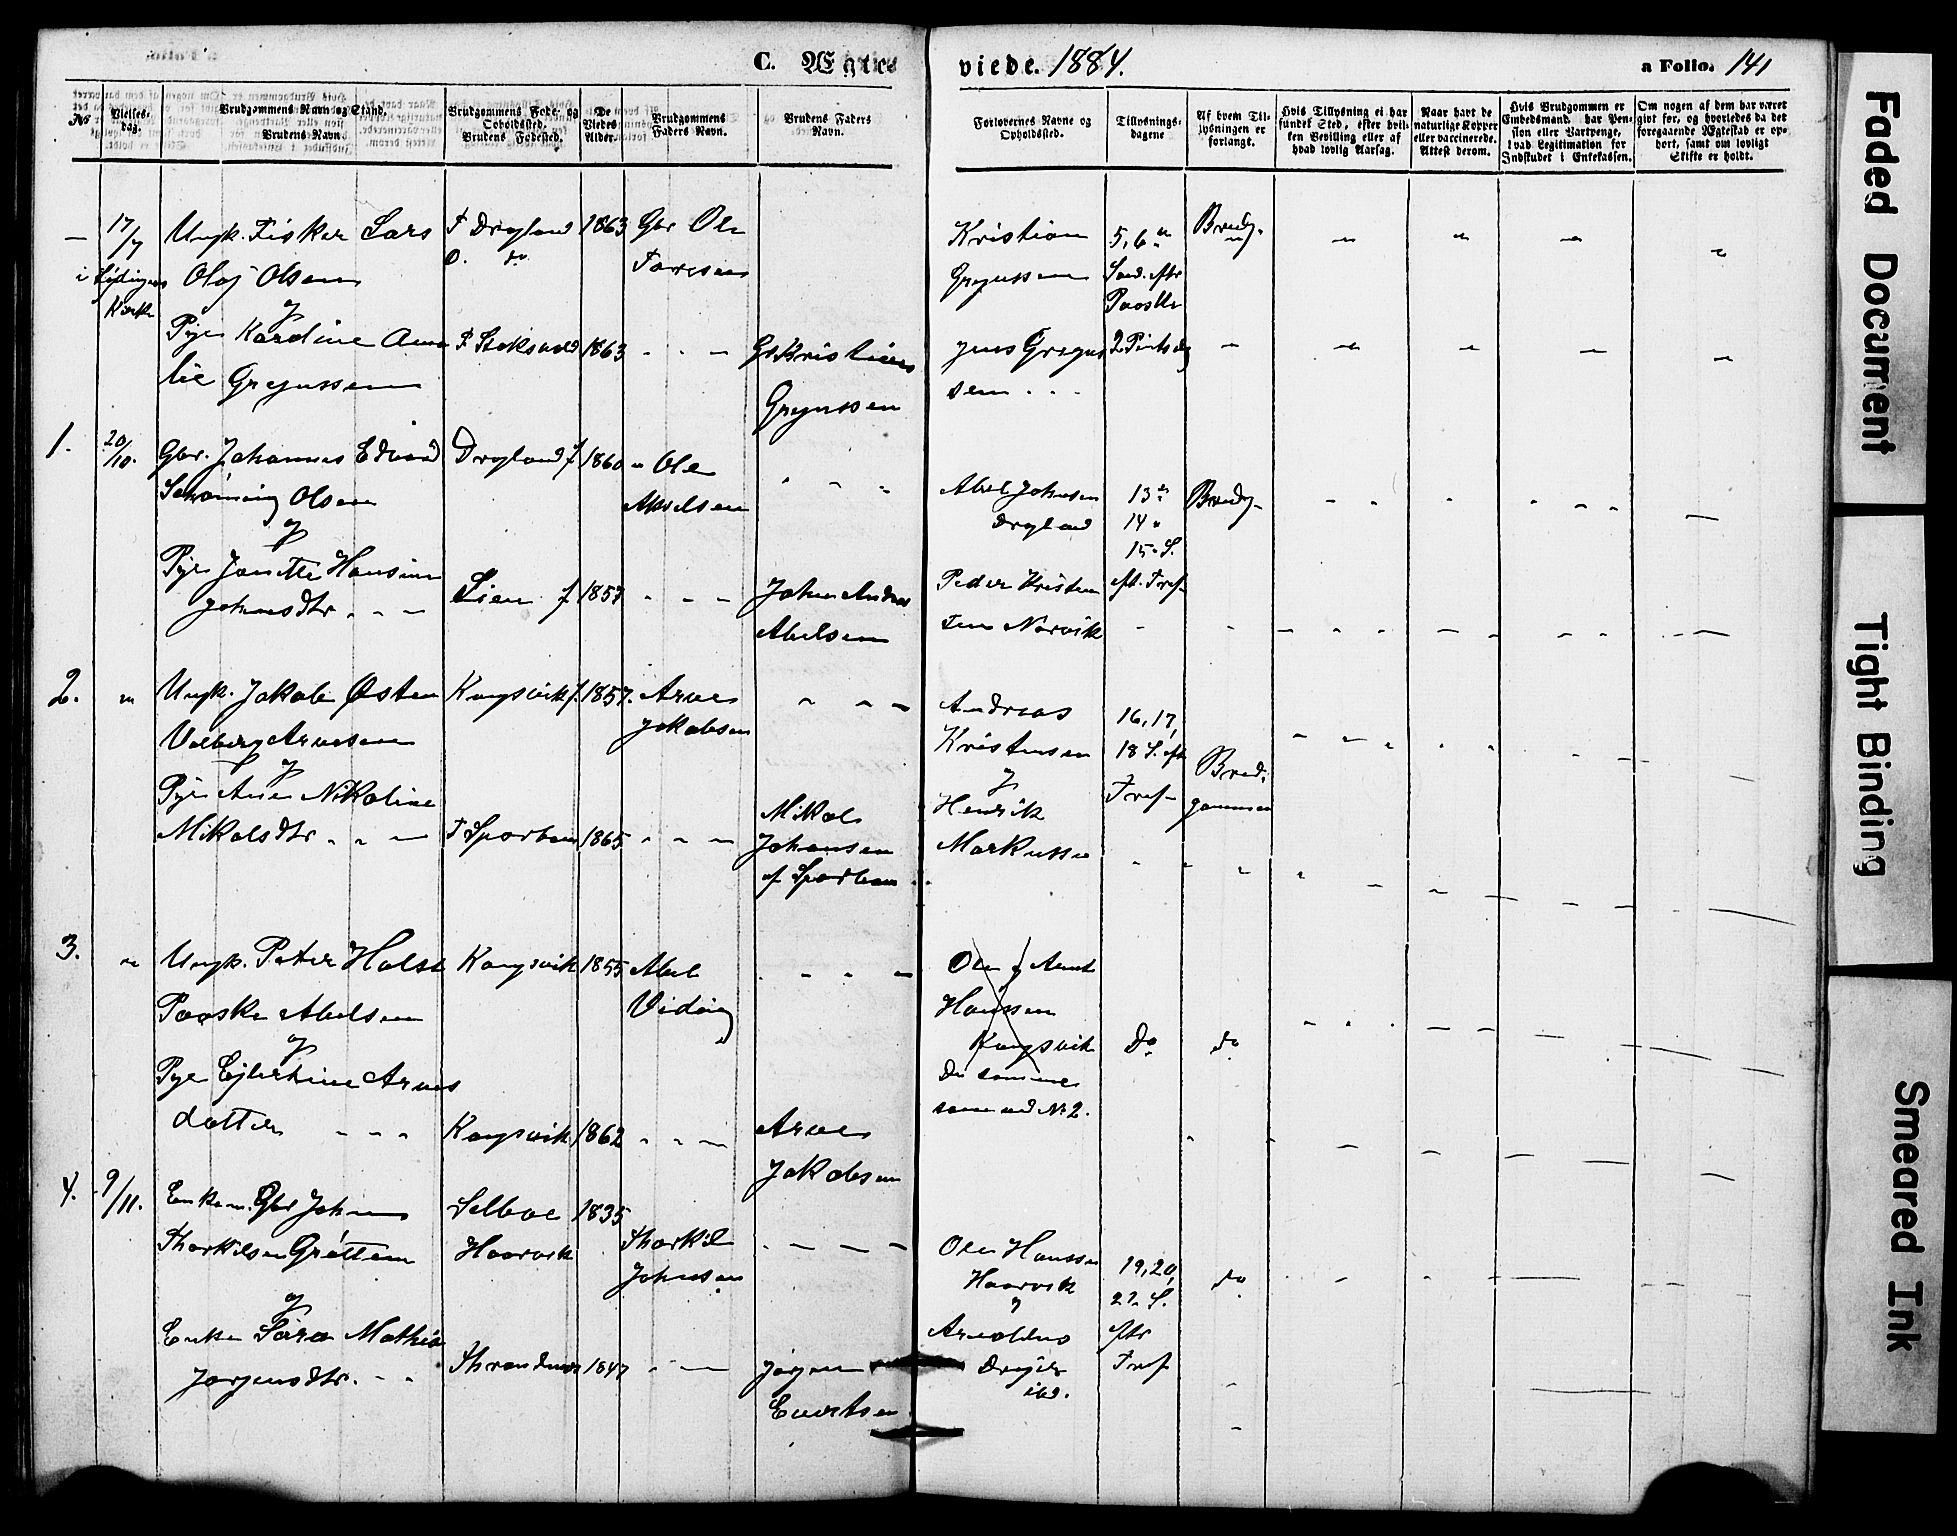 C. Ægtes viede. 1884. a Folio. 141
No
Vielses-
dag.
Brudgommens Navn og Stand.
Brudens Navn.
Brudgommens Føde- og
Opholdssted.
Brudens Fødested.
De
Viedes
Alder.
Brudgommens
Faders Navn.
Brudens Faders
Navn.
Forlovernes Navne og
Opholdssted.
Tillysnings-
dagene
Af hvem Til-
lysningen er
forlangt.
Hvis Tillysning ei har
fundet Sted, efter hvil-
ken Bevilling eller af
hvad lovlig Aarsag.
Naar havt de
naturlige Kopper
eller vaccinerede.
Attest derom.
Hvis Brudgommen er
Embedsmand, har Pen-
sion eller Vartpenge,
hvad Legitimation for
Indskudet i Enkekassen.
Om nogen af dem har været
givt før, og hvorledes da det
foregaaende Ægteskab er op-
hørt, samt om lovligt
Skifte er holdt.
— 17/7
i Lødingens
Kirke
Ungk. Fisker Lars
Olaj Olsen
og
Pige Karoline Ama
lie Gregussen
F Dragland
O. do
F Stoksund
1863
1863
Gbr Ole
Toresen
Gbr Kristian
Gregussen
Kristian
Gregussen
Jens Gregus
sen
5, 6te
Sønd. eftr
Paaske
2 Pintsdag
Brudg.
1. 20/10.
Gbr. Johannes Edvard
Schøning Olsen
og
Pige Janette Hansine
Johnsdtr.
Dragland f
Lien f
1860
1857
Ole
Akselsen
Johan Andreas
Abelsen
Abel Johnsen
Dragland
Peder Kristen
sen Norvik
13de
14 "
15. S.
eft. Tref.
Brudg.
2. "
Ungk. Jakob Østen
Volberg Arnesen
og
Pige Ane Nikoline
Mikalsdtr
Kongsvik f.
F Sparboen
1857.
1865
Arnes
Jakobsen
Mikal
Johansen
af Sparboen
Andreas
Kristensen
og
Henrik
Markussen
16, 17,
18 S. eft
Tref.
Brud.
gommen
3. "
Ungk. Peter Holst
Paaske Abelsen
og
Pige Ejlertine Arnes
datter
Kongsvik
Kongsvik
1855
1862
Abel
Viding
Arnes
Jakobsen
Ole og Arnt
Hanssen
Kongsvik
De samme
som ved No 2.
Do
do
4. 9/11.
Enkem. Gbr Johan
Thorkilsen Grøttem
og
Enke Sara Mathea
Jørgensdtr.
Selboe
Haarvik
Thrandenes
1835
1847
Thorkil
Johnsen
Jørgen
Evertsen
Ole Hanssen
Haarvik
og
Arnoldus
Drejer
ibd.
19, 20,
21 S.
eftr
Tref
do
Faded Document
Tight Binding
Smeared Ink